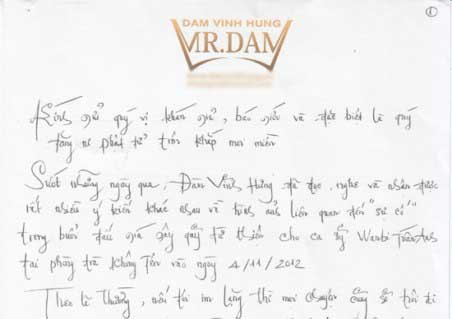 1
DAM VINH HUNG
MR.DAM
Kính gửi quý vị khán giả, báo giới và đặc biệt là quý
tăng ni phật tử trên khắp mọi miền
Suốt những ngày qua, Đàm Vĩnh Hưng đã đọc, nghe và nhận được
rất nhiều ý kiến khác nhau và hình ảnh liên quan đến "sự cố"
trong buổi đấu giá gây quỹ từ thiện cho ca sỹ Wanbi Tuấn Anh
tại phòng trà Không Tên vào ngày 4/11/2012
Theo lẽ thường, nếu tôi im lặng thì mọi chuyện cũng sẽ trôi đi